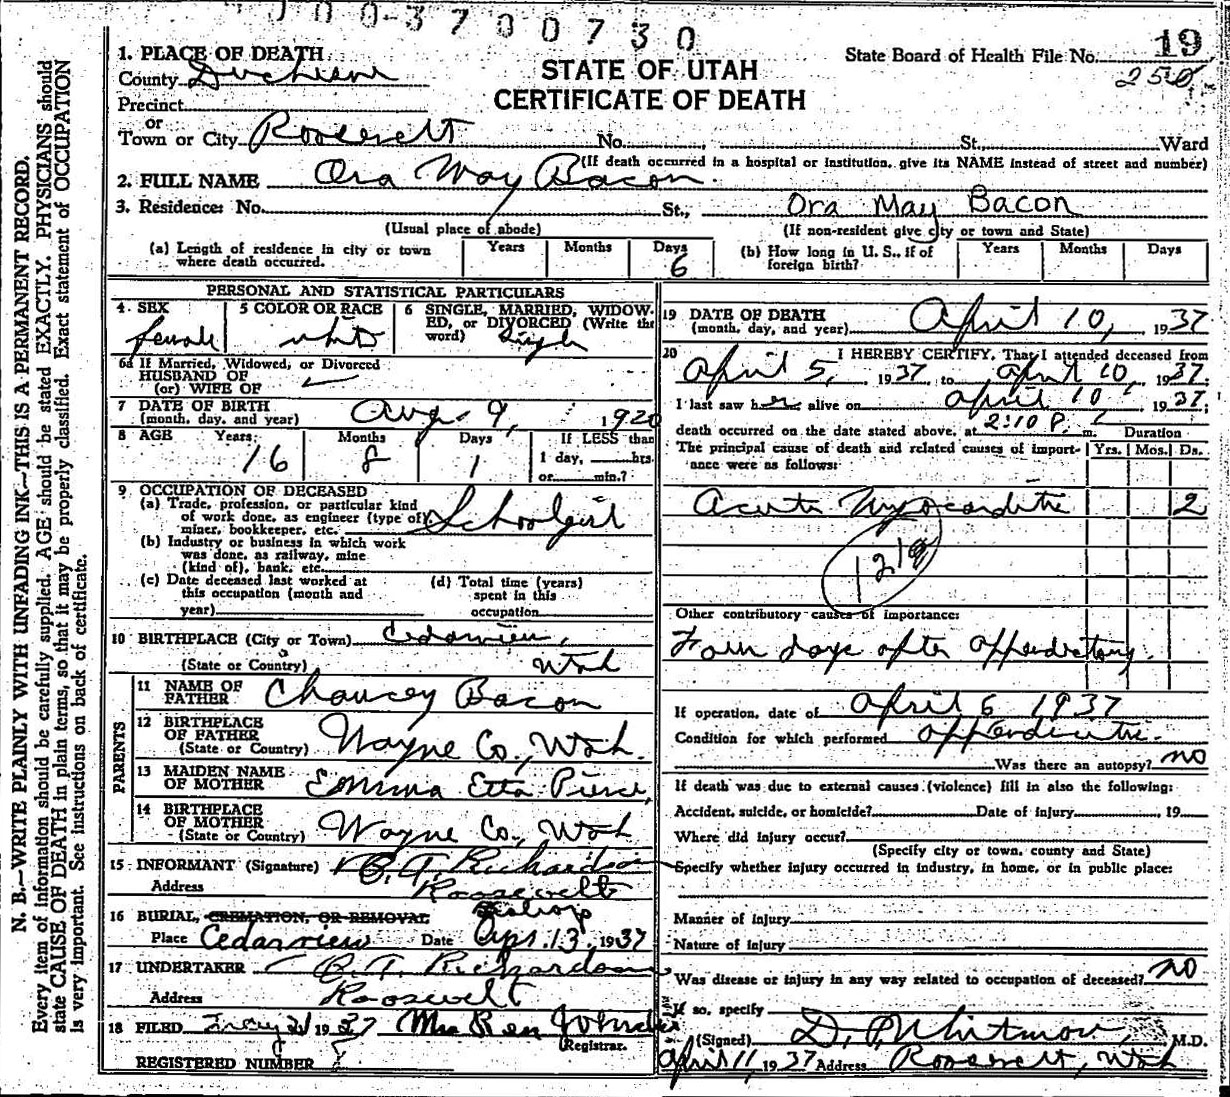 00-3700730
1. PLACE OF DEATH
County Duchesne
Precinct
or
Town or City Roosevelt No. St., Ward
(If death occurred in a hospital or institution, give its NAME instead of street and number)
STATE OF UTAH
CERTIFICATE OF DEATH
State Board of Health File No. 19
250
2. FULL NAME Ora May Bacon.
3. Residence: No. St., Ora May Bacon
(Usual place of abode) (If non-resident give city or town and State)
(a) Length of residence in city or town where death occurred. Years Months Days 6
(b) How long in U. S., if of foreign birth? Years Months Days
PERSONAL AND STATISTICAL PARTICULARS
4. SEX female
5 COLOR OR RACE white
6 SINGLE, MARRIED, WIDOWED, or DIVORCED (Write the word) Single
6a If Married, Widowed, or Divorced
HUSBAND OF
(or) WIFE OF
7 DATE OF BIRTH
(month, day, and year) Aug. 9, 1920
8 AGE Years 16 Months 8 Days 1 If LESS than 1 day, hrs. or min.?
9 OCCUPATION OF DECEASED
(a) Trade, profession, or particular kind of work done, as engineer (type of) miner, bookkeeper, etc. Schoolgirl
(b) Industry or business in which work was done, as railway, mine (kind of), bank, etc.
(c) Date deceased last worked at this occupation (month and year)
(d) Total time (years) spent in this occupation
10 BIRTHPLACE (City or Town) Cedarview,
(State or Country) Utah
PARENTS
11 NAME OF FATHER Chaucey Bacon
12 BIRTHPLACE OF FATHER
(State or Country) Wayne Co., Utah.
13 MAIDEN NAME OF MOTHER Emma Etta Pierce,
14 BIRTHPLACE OF MOTHER
(State or Country) Wayne Co., Utah
15 INFORMANT (Signature) Richardson
Address Roosevelt
16 BURIAL, CREMATION, OR REMOVAL
Place Cedarview Date Apr. 13, 1937
17 UNDERTAKER Richardson
Address Roosevelt
18 FILED 1937 Mrs
Registrar.
REGISTERED NUMBER
19 DATE OF DEATH
(month, day, and year) April 10, 1937
20 I HEREBY CERTIFY, That I attended deceased from
April 5, 1937, to April 10, 1937;
I last saw her alive on April 10, 1937;
death occurred on the date stated above, at 2:10 P. m. Duration
The principal cause of death and related causes of importance were as follows: Yrs. Mos. Ds.
Acute Myocarditis 2
Other contributory causes of importance:
Four days after appendectomy.
If operation, date of April 6 1937
Condition for which performed appendicitis.
Was there an autopsy? no
If death was due to external causes (violence) fill in also the following:
Accident, suicide, or homicide? Date of injury 19
Where did injury occur?
(Specify city or town, county and State)
Specify whether injury occurred in industry, in home, or in public place:
Manner of injury
Nature of injury
Was disease or injury in any way related to occupation of deceased? no
If so, specify
(Signed) D. P. Whitmore, M.D.
April 11, 1937 Address Roosevelt, Utah
N. B.—WRITE PLAINLY WITH UNFADING INK—THIS IS A PERMANENT RECORD.
Every item of information should be carefully supplied. AGE should be stated EXACTLY. PHYSICIANS should
state CAUSE OF DEATH in plain terms, so that it may be properly classified. Exact statement of OCCUPATION
is very important. See instructions on back of certificate.